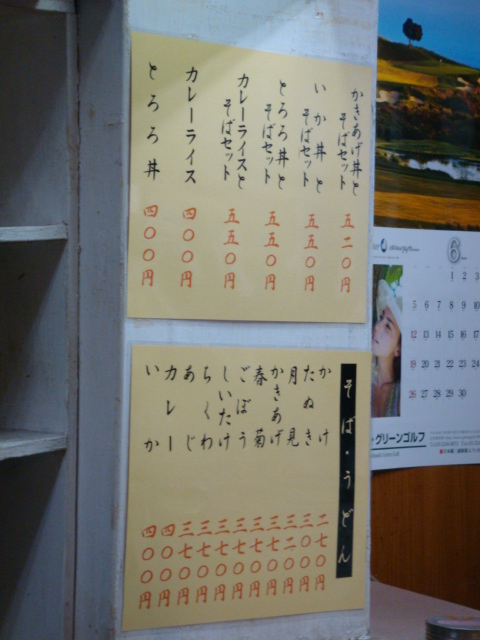 かきあげ丼と
そばセット 五二〇円
いか丼と
そばセット 五五〇円
とろろ丼と
そばセット 五五〇円
カレーライスと
そばセット 五五〇円
カレーライス 四〇〇円
とろろ丼 四〇〇円
そば・うどん
かけ 二七〇円
たぬき 三〇〇円
月見 三二〇円
かきあげ 三七〇円
春菊 三七〇円
ごぼう 三七〇円
しいたけ 三七〇円
ちくわ 三七〇円
あじ 三七〇円
カレー 四〇〇円
いか 四〇〇円
6
1 2 3
5 6 7 8 9 10
12 13 14 15 16 17
19 20 21 22 23 24
26 27 28 29 30
グリーンゴルフ